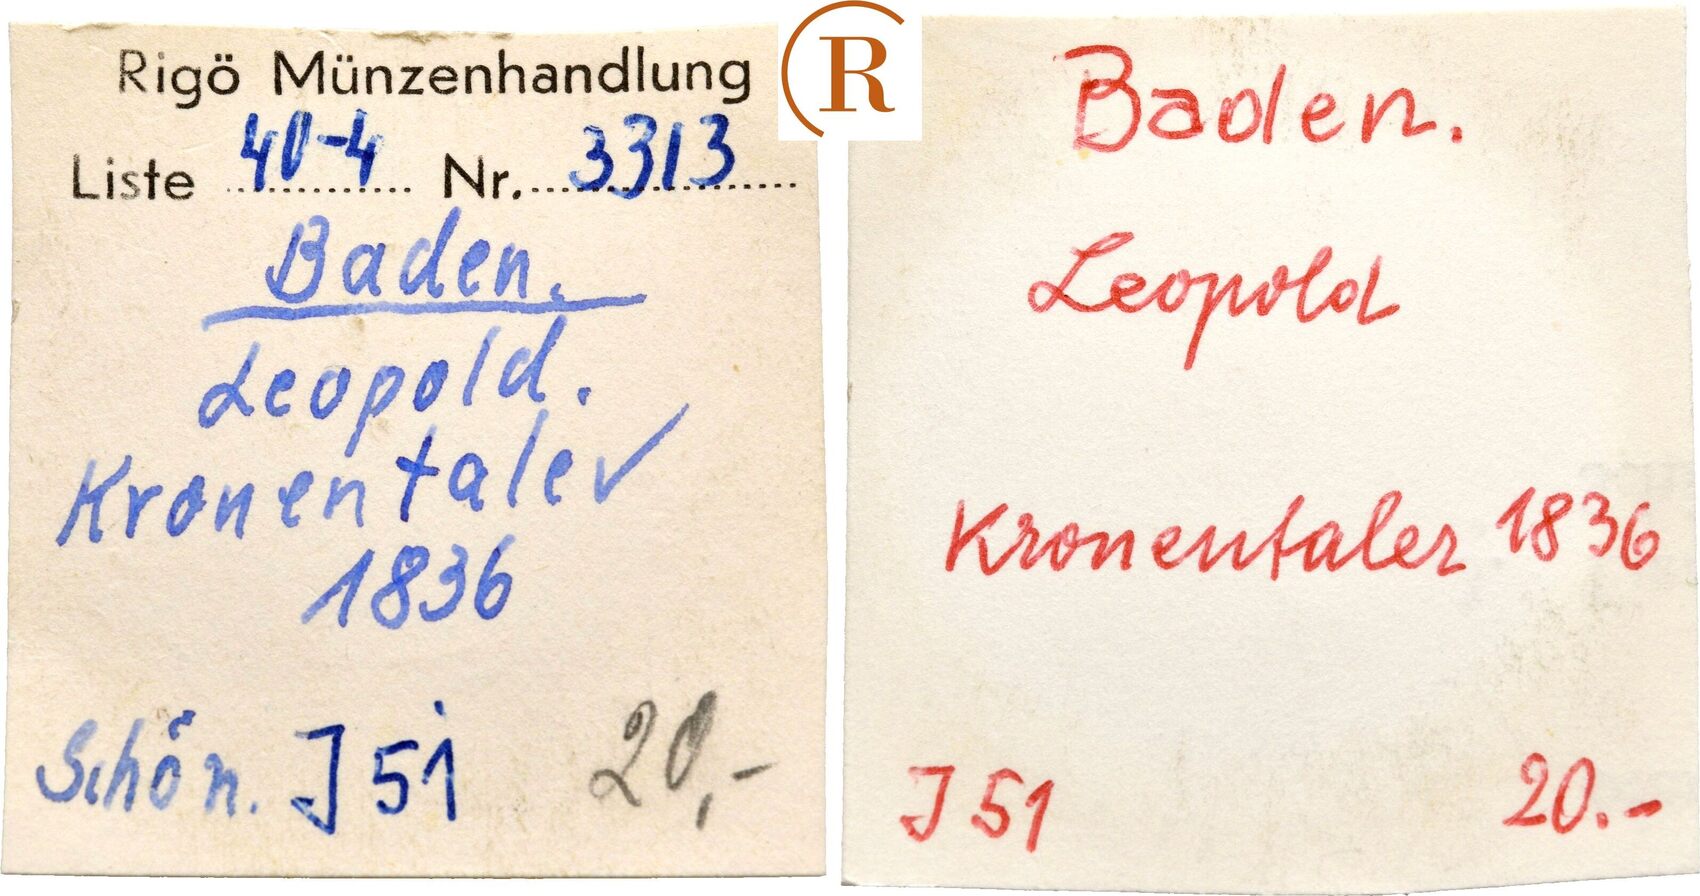 Rigö Münzenhandlung
Liste 40-4 Nr. 3313
Baden.
Leopold.
Kronentaler
1836
Schön. J 51 20,-
R
Baden.
Leopold
Kronentaler 1836
J 51 20.-